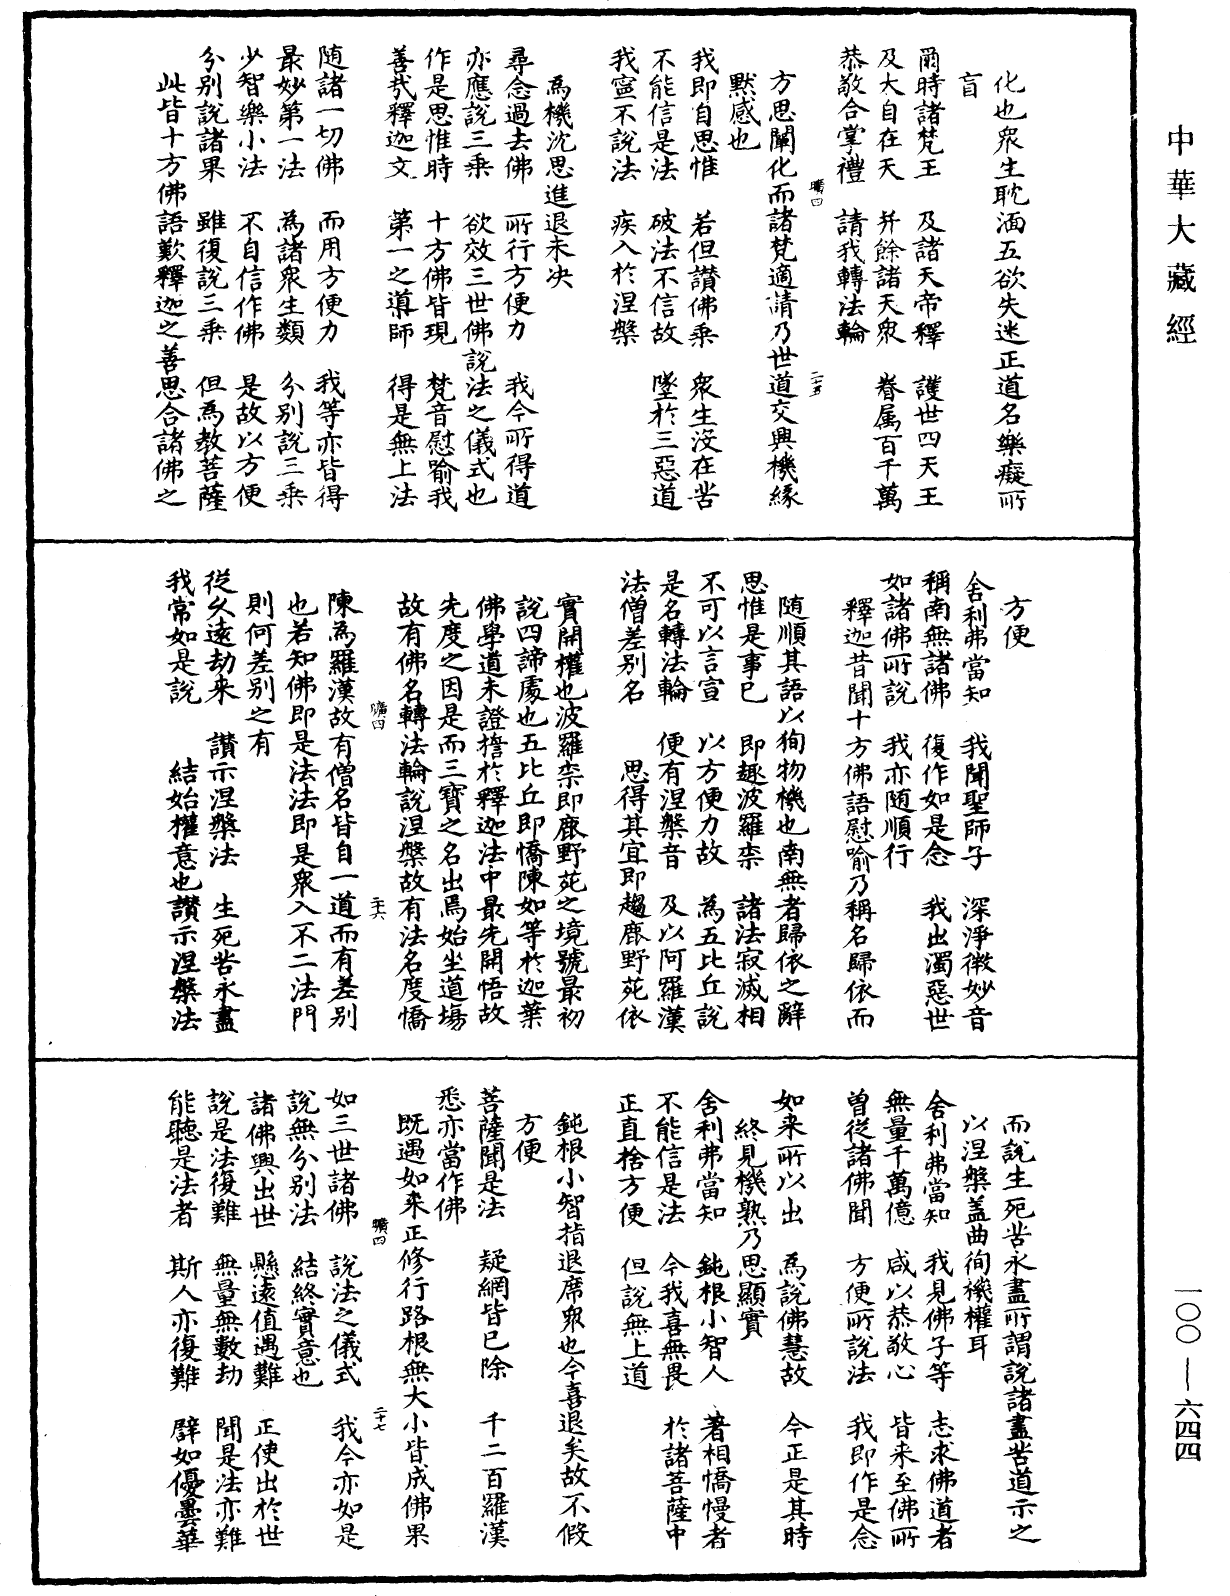 中華大藏經
化也衆生耽湎五欲失迷正道名樂癡所
盲
爾時諸梵王　及諸天帝釋　護世四天王
及大自在天　并餘諸天衆　眷属百千萬
恭敬合掌禮　請我轉法輪
曠四　二十五
方思闡化而諸梵適請乃世道交興機緣
默感也
我即自思惟　若但讃佛乘　衆生没在苦
不能信是法　破法不信故　墜於三惡道
我寧不說法　疾入於涅槃
為機沈思進退未决
尋念過去佛　所行方便力　我今所得道
亦應說三乘　欲效三世佛說法之儀式也
作是思惟時　十方佛皆現　梵音慰喻我
善㢤釋迦文　第一之導師　得是無上法
随諸一切佛　而用方便力　我等亦皆得
最妙第一法　為諸衆生類　分别說三乘
少智樂小法　不自信作佛　是故以方便
分别說諸果　雖復說三乘　但為教菩薩
此皆十方佛語歎釋迦之善思合諸佛之
方便
舍利弗當知　我聞聖師子　深淨微妙音
稱南無諸佛　復作如是念　我出濁惡世
如諸佛所說　我亦随順行
釋迦昔聞十方佛語慰喻乃稱名歸依而
随順其語以徇物機也南無者歸依之辭
思惟是事已　即趣波羅柰　諸法寂滅相
不可以言宣　以方便力故　為五比丘說
是名轉法輪　便有涅槃音　及以阿羅漢
法僧差别名　思得其宜即趨鹿野苑依
實開權也波羅柰即鹿野苑之境號最初
說四諦處也五比丘即憍陳如等於迦葉
佛學道未證擔於釋迦法中最先開悟故
先度之因是而三寶之名出焉始坐道場
故有佛名轉法輪說涅槃故有法名度憍
曠四　二十六
陳為羅漢故有僧名皆自一道而有差别
也若知佛即是法法即是衆入不二法門
則何差别之有
從久遠劫來　讃示涅槃法　生死苦永盡
我常如是說　結始權意也讃示涅槃法
而說生死苦永盡所謂說諸盡苦道示之
以涅槃盖曲徇機權耳
舍利弗當知　我見佛子等　志求佛道者
無量千萬億　咸以恭敬心　皆来至佛所
曽從諸佛聞　方便所說法　我即作是念
如来所以出　為說佛慧故　今正是其時
終見機熟乃思顯實
舍利弗當知　鈍根小智人　著相憍慢者
不能信是法　今我喜無畏　於諸菩薩中
正直捨方便　但說無上道
鈍根小智指退席衆也今喜退矣故不假
方便
菩薩聞是法　疑網皆已除　千二百羅漢
悉亦當作佛
既遇如来正修行路根無大小皆成佛果
曠四　二十七
如三世諸佛　說法之儀式　我今亦如是
說無分别法　結終實意也
諸佛興出世　懸遠值遇難　正使出於世
說是法復難　無量無數劫　聞是法亦難
能聽是法者　斯人亦復難　辟如優曇華
一〇〇—六四四